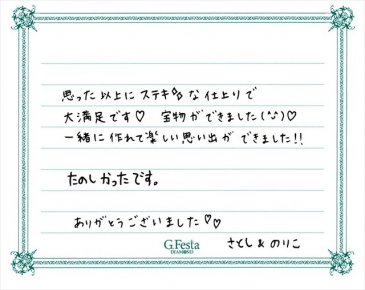 思った以上にステキな仕上りで
大満足です♡ 宝物ができました(^^)♡
一緒に作れて楽しい思い出ができました!!
たのしかったです。
ありがとうございました♡♡
G.Festa
DIAMOND
さとし & のりこ